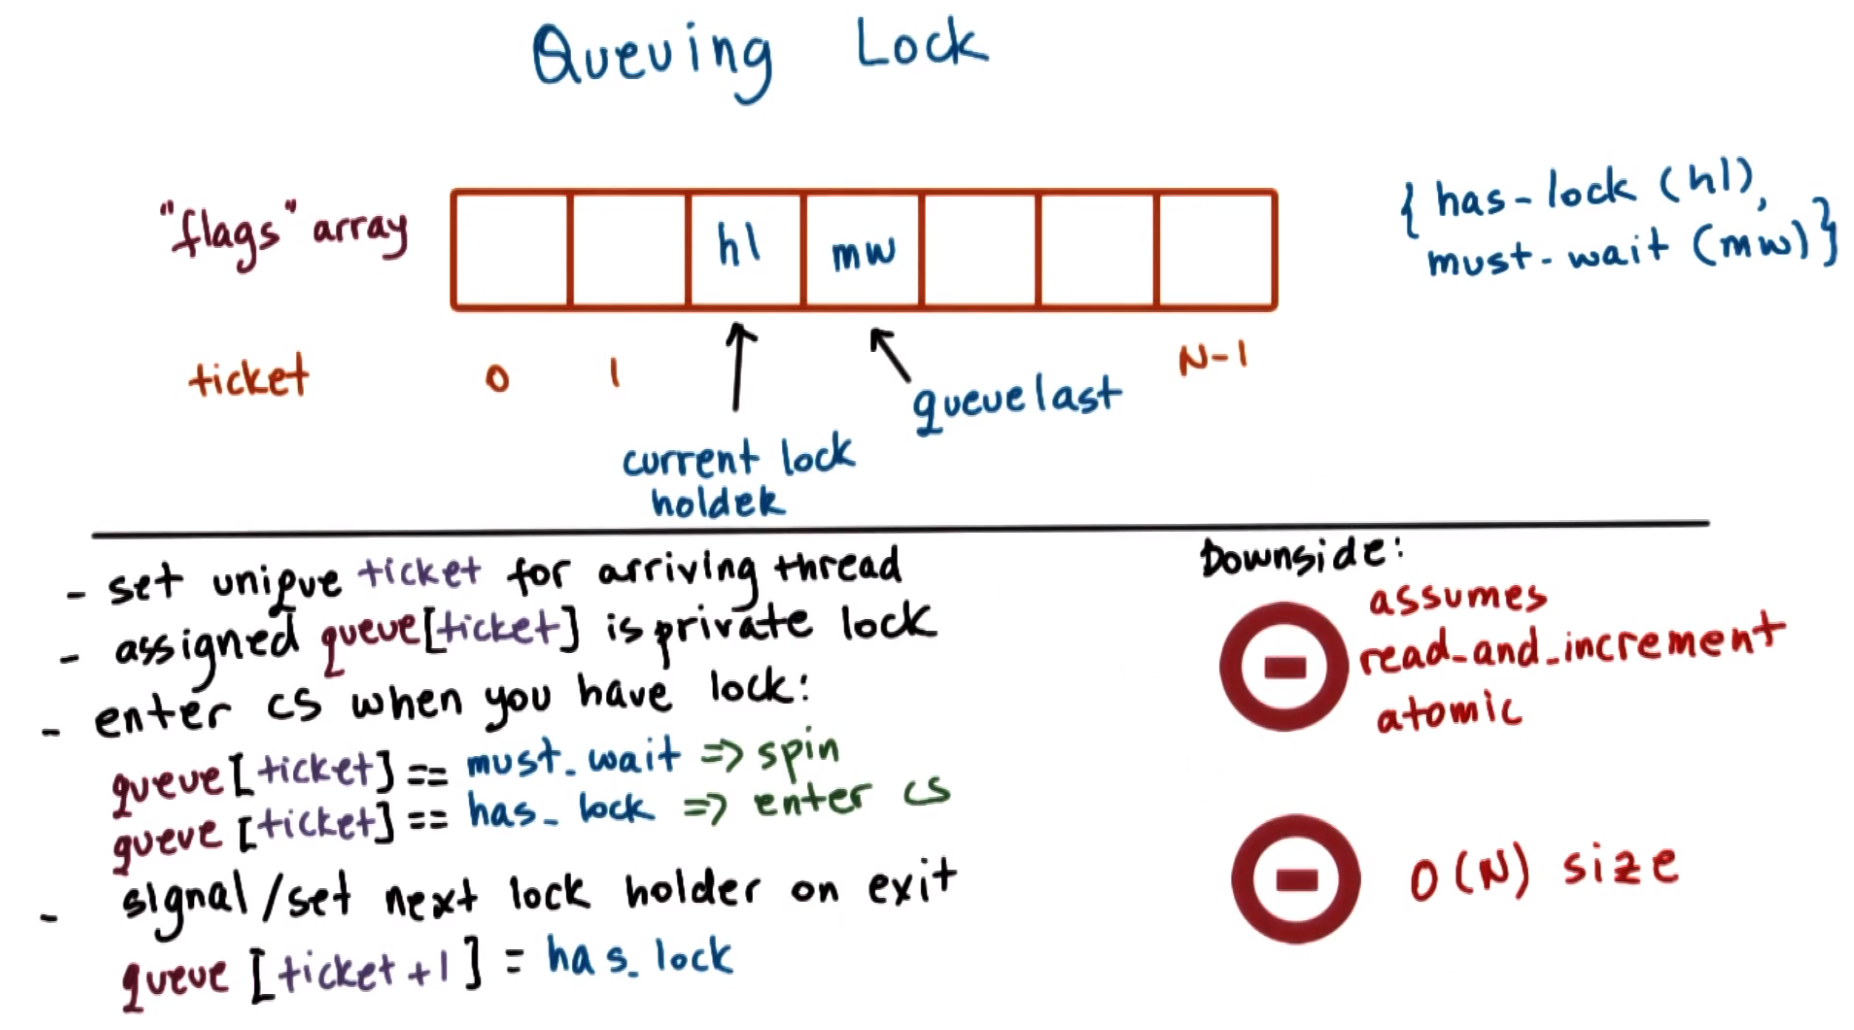 Queuing Lock
"flags" array
hl
mw
{has-lock (hl),
must-wait (mw)}
ticket
0
1
N-1
queuelast
current lock
holder
- set unique ticket for arriving thread
- assigned queue[ticket] is private lock
- enter cs when you have lock:
queue[ticket] == must_wait => spin
queue[ticket] == has_lock => enter cs
- signal/set next lock holder on exit
queue[ticket+1] = has_lock
Downside:
assumes
read_and_increment
atomic
O(N) size